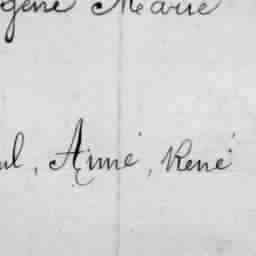 gène Marie
ul, Aimé, René